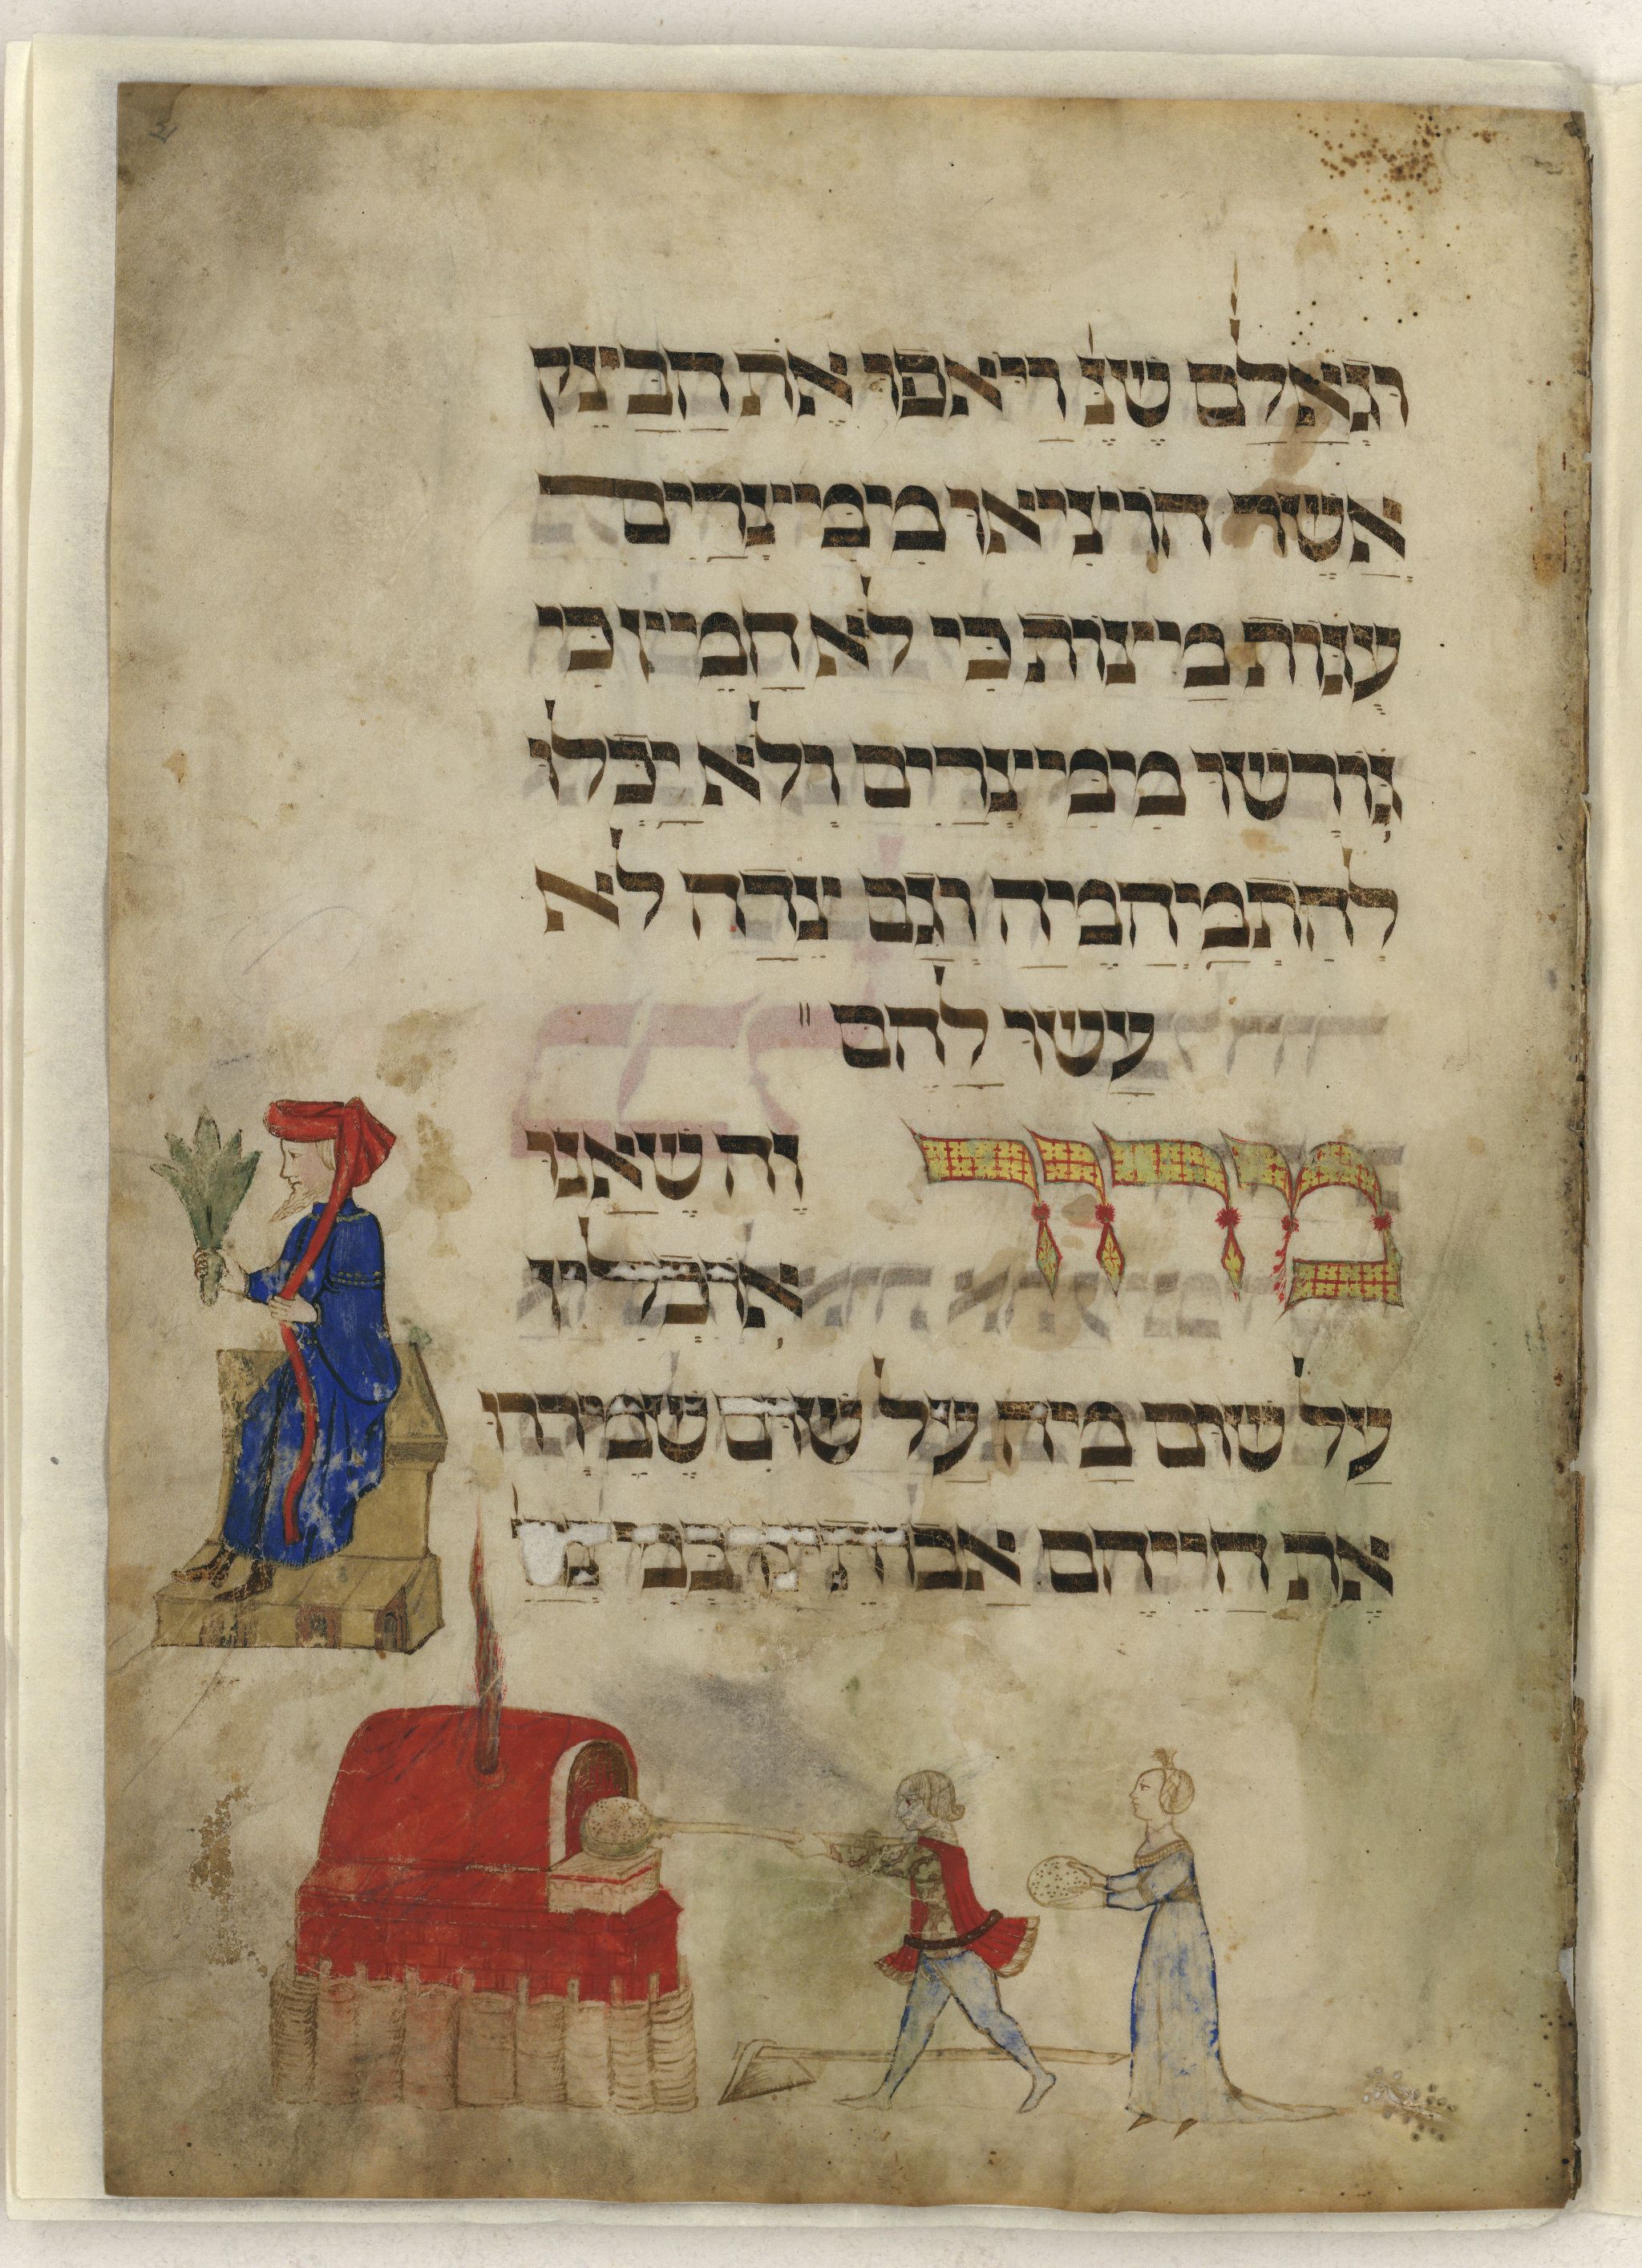 וגאלם שנ ויאפו את הבצק
אשר הוציאו ממצרים
עוגות מצות כי לא חמץ כי
גורשו ממצרים ולא יכלו
להתמהמה וגם צדה לא
עשו להם
מרור זה שאנו
אוכלין
על שום מה על שום שמררו
את חייהם